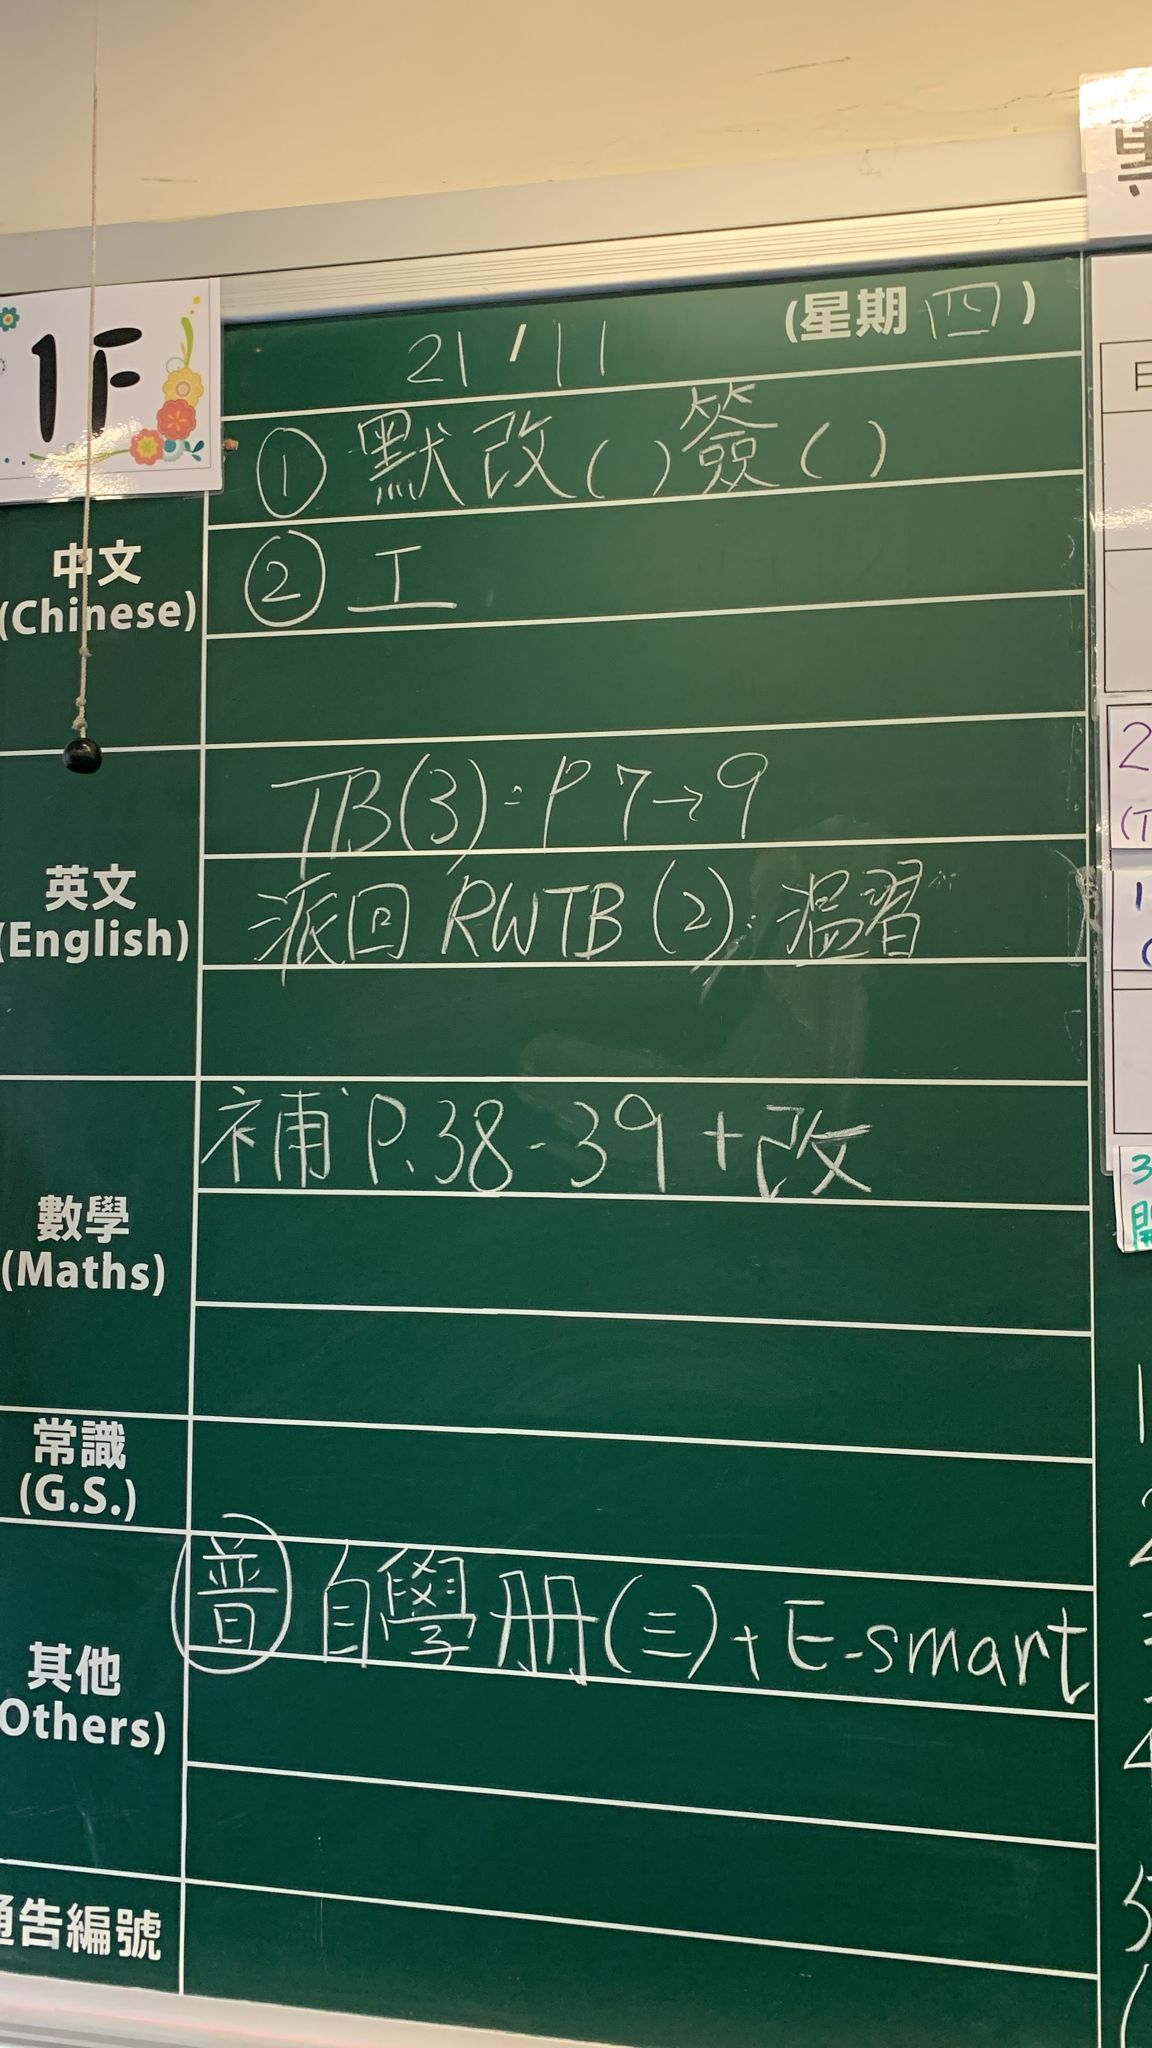 1F
21/11 (星期四)
① 默改( )簽( )
中文
② 工
(Chinese)
TB(3): P7→9
英文
派回 RWTB (2): 溫習
(English)
補 P.38-39 + 改
數學
(Maths)
常識
(G.S.)
普 自學册(三) + E-smart
其他
Others)
通告編號